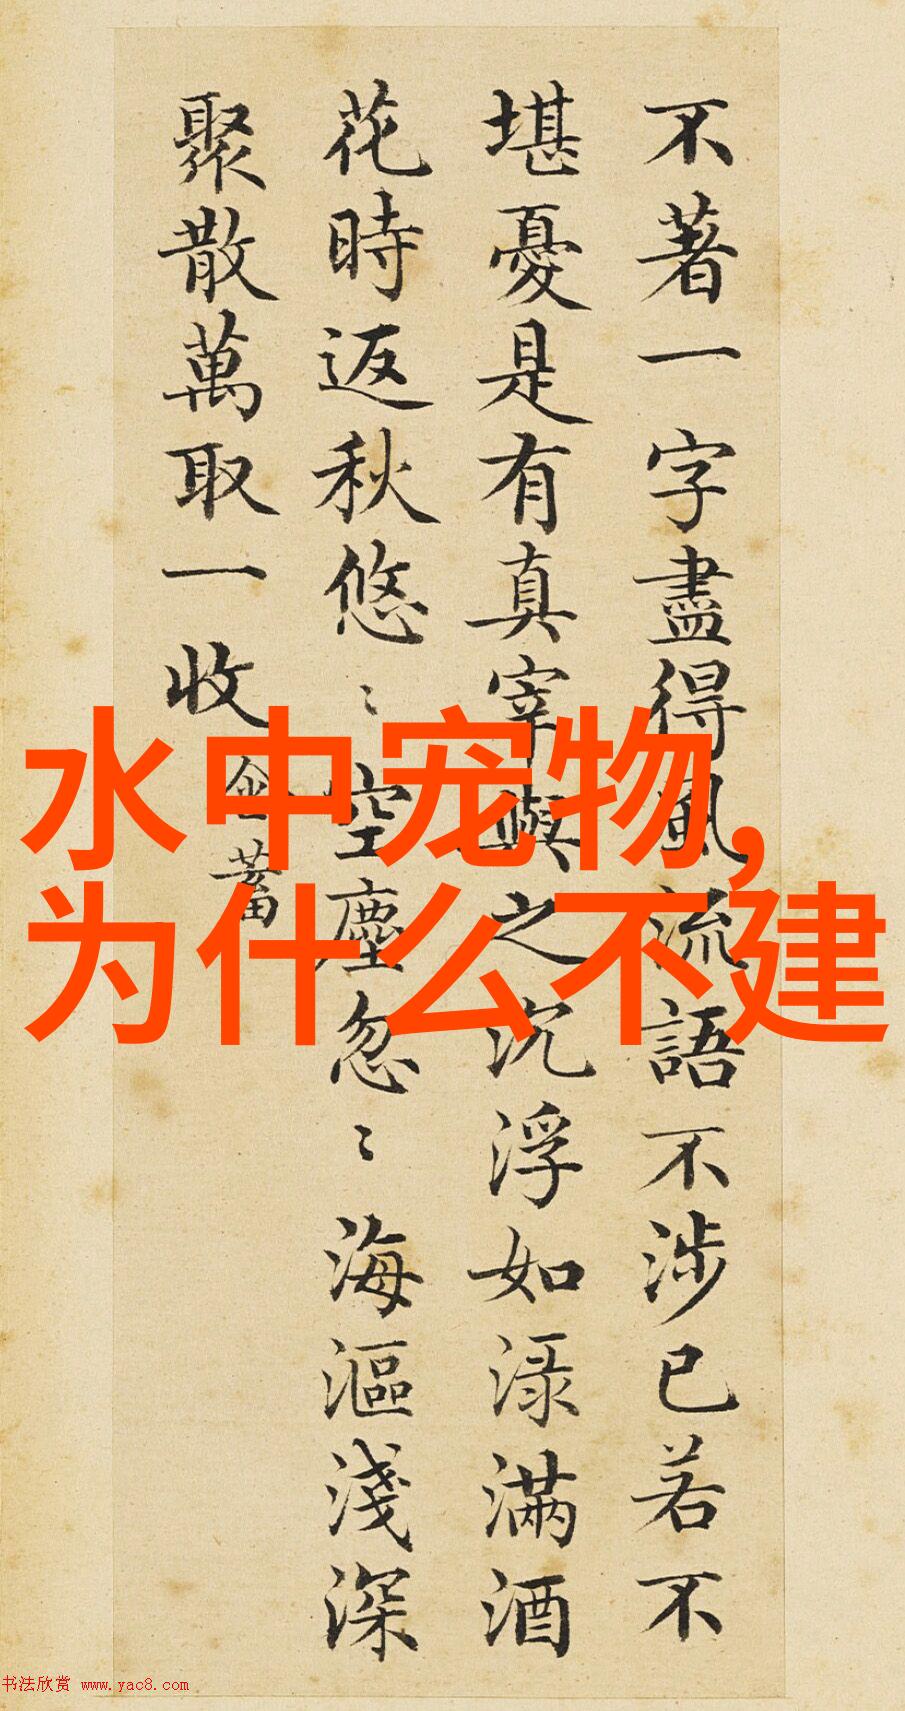 不著一字盡得風流語不涉已若不
堪憂是有真宰與之沉浮如淥滿酒
花時返秋悠〻空塵忽〻海漚淺深
聚散萬取一收
蓄
水中宠物,
为什么不建
书法欣赏 www.yac8.com